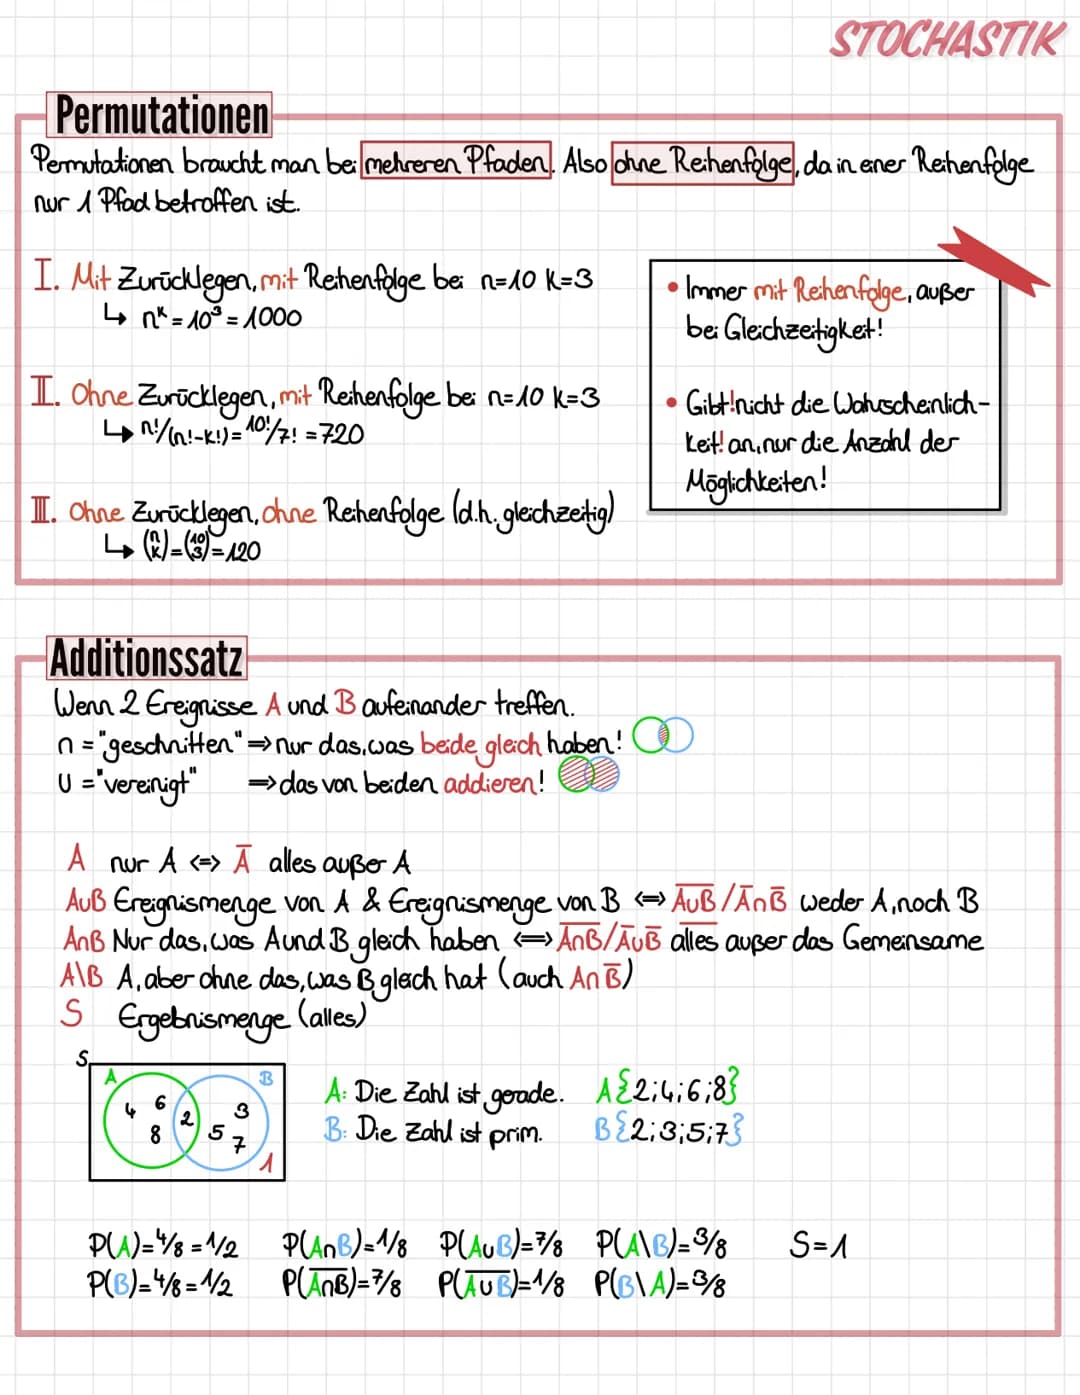 STOCHASTIK
Permutationen
Permutationen braucht man bei mehreren Pfaden. Also ohne Reihenfolge, da in einer Reihenfolge
nur 1 Pfad betroffen ist.
I. Mit Zurücklegen, mit Reihenfolge bei n=10 k=3
↳ nᵏ = 10³ = 1000
II. Ohne Zurücklegen, mit Reihenfolge bei n=10 k=3
↳ n!/(n!-k!) = 10!/7! = 720
III. Ohne Zurücklegen, ohne Reihenfolge (d.h. gleichzeitig)
↳ (n k) = (10 3) = 120
• Immer mit Reihenfolge, außer
bei Gleichzeitigkeit!
• Gibt! nicht die Wahrscheinlich-
keit! an, nur die Anzahl der
Möglichkeiten!
Additionssatz
Wenn 2 Ereignisse A und B aufeinander treffen.
∩ = "geschnitten" ⇒ nur das, was beide gleich haben!
∪ = "vereinigt" ⇒ das von beiden addieren!
A nur A <=> A̅ alles außer A
A∪B Ereignismenge von A & Ereignismenge von B <=> A̅∪̅B̅ / A̅∩B̅ weder A, noch B
A∩B Nur das, was A und B gleich haben <=> A̅∩̅B̅ / A̅∪B̅ alles außer das Gemeinsame
A\B A, aber ohne das, was B gleich hat (auch A∩B̅)
S Ergebnismenge (alles)
S
A B
4 6 8 2 3 5 7
1
A: Die Zahl ist gerade. A{2;4;6;8}
B: Die Zahl ist prim. B{2;3;5;7}
P(A)=4/8=1/2 P(A∩B)=1/8 P(A∪B)=7/8 P(A\B)=3/8 S=1
P(B)=4/8=1/2 P(A̅∩̅B̅)=7/8 P(A̅∪̅B̅)=1/8 P(B\A)=3/8